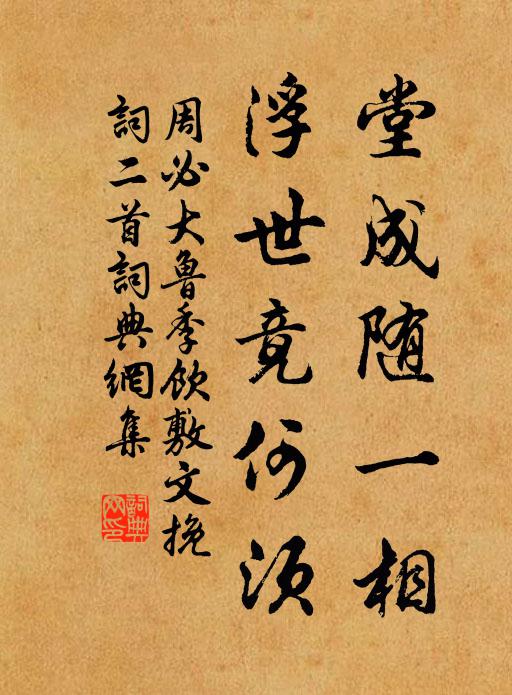 堂成随一相
浮世竟何須
周必大魯季欽敷文挽
詞二首詞典網集
詞典
网印